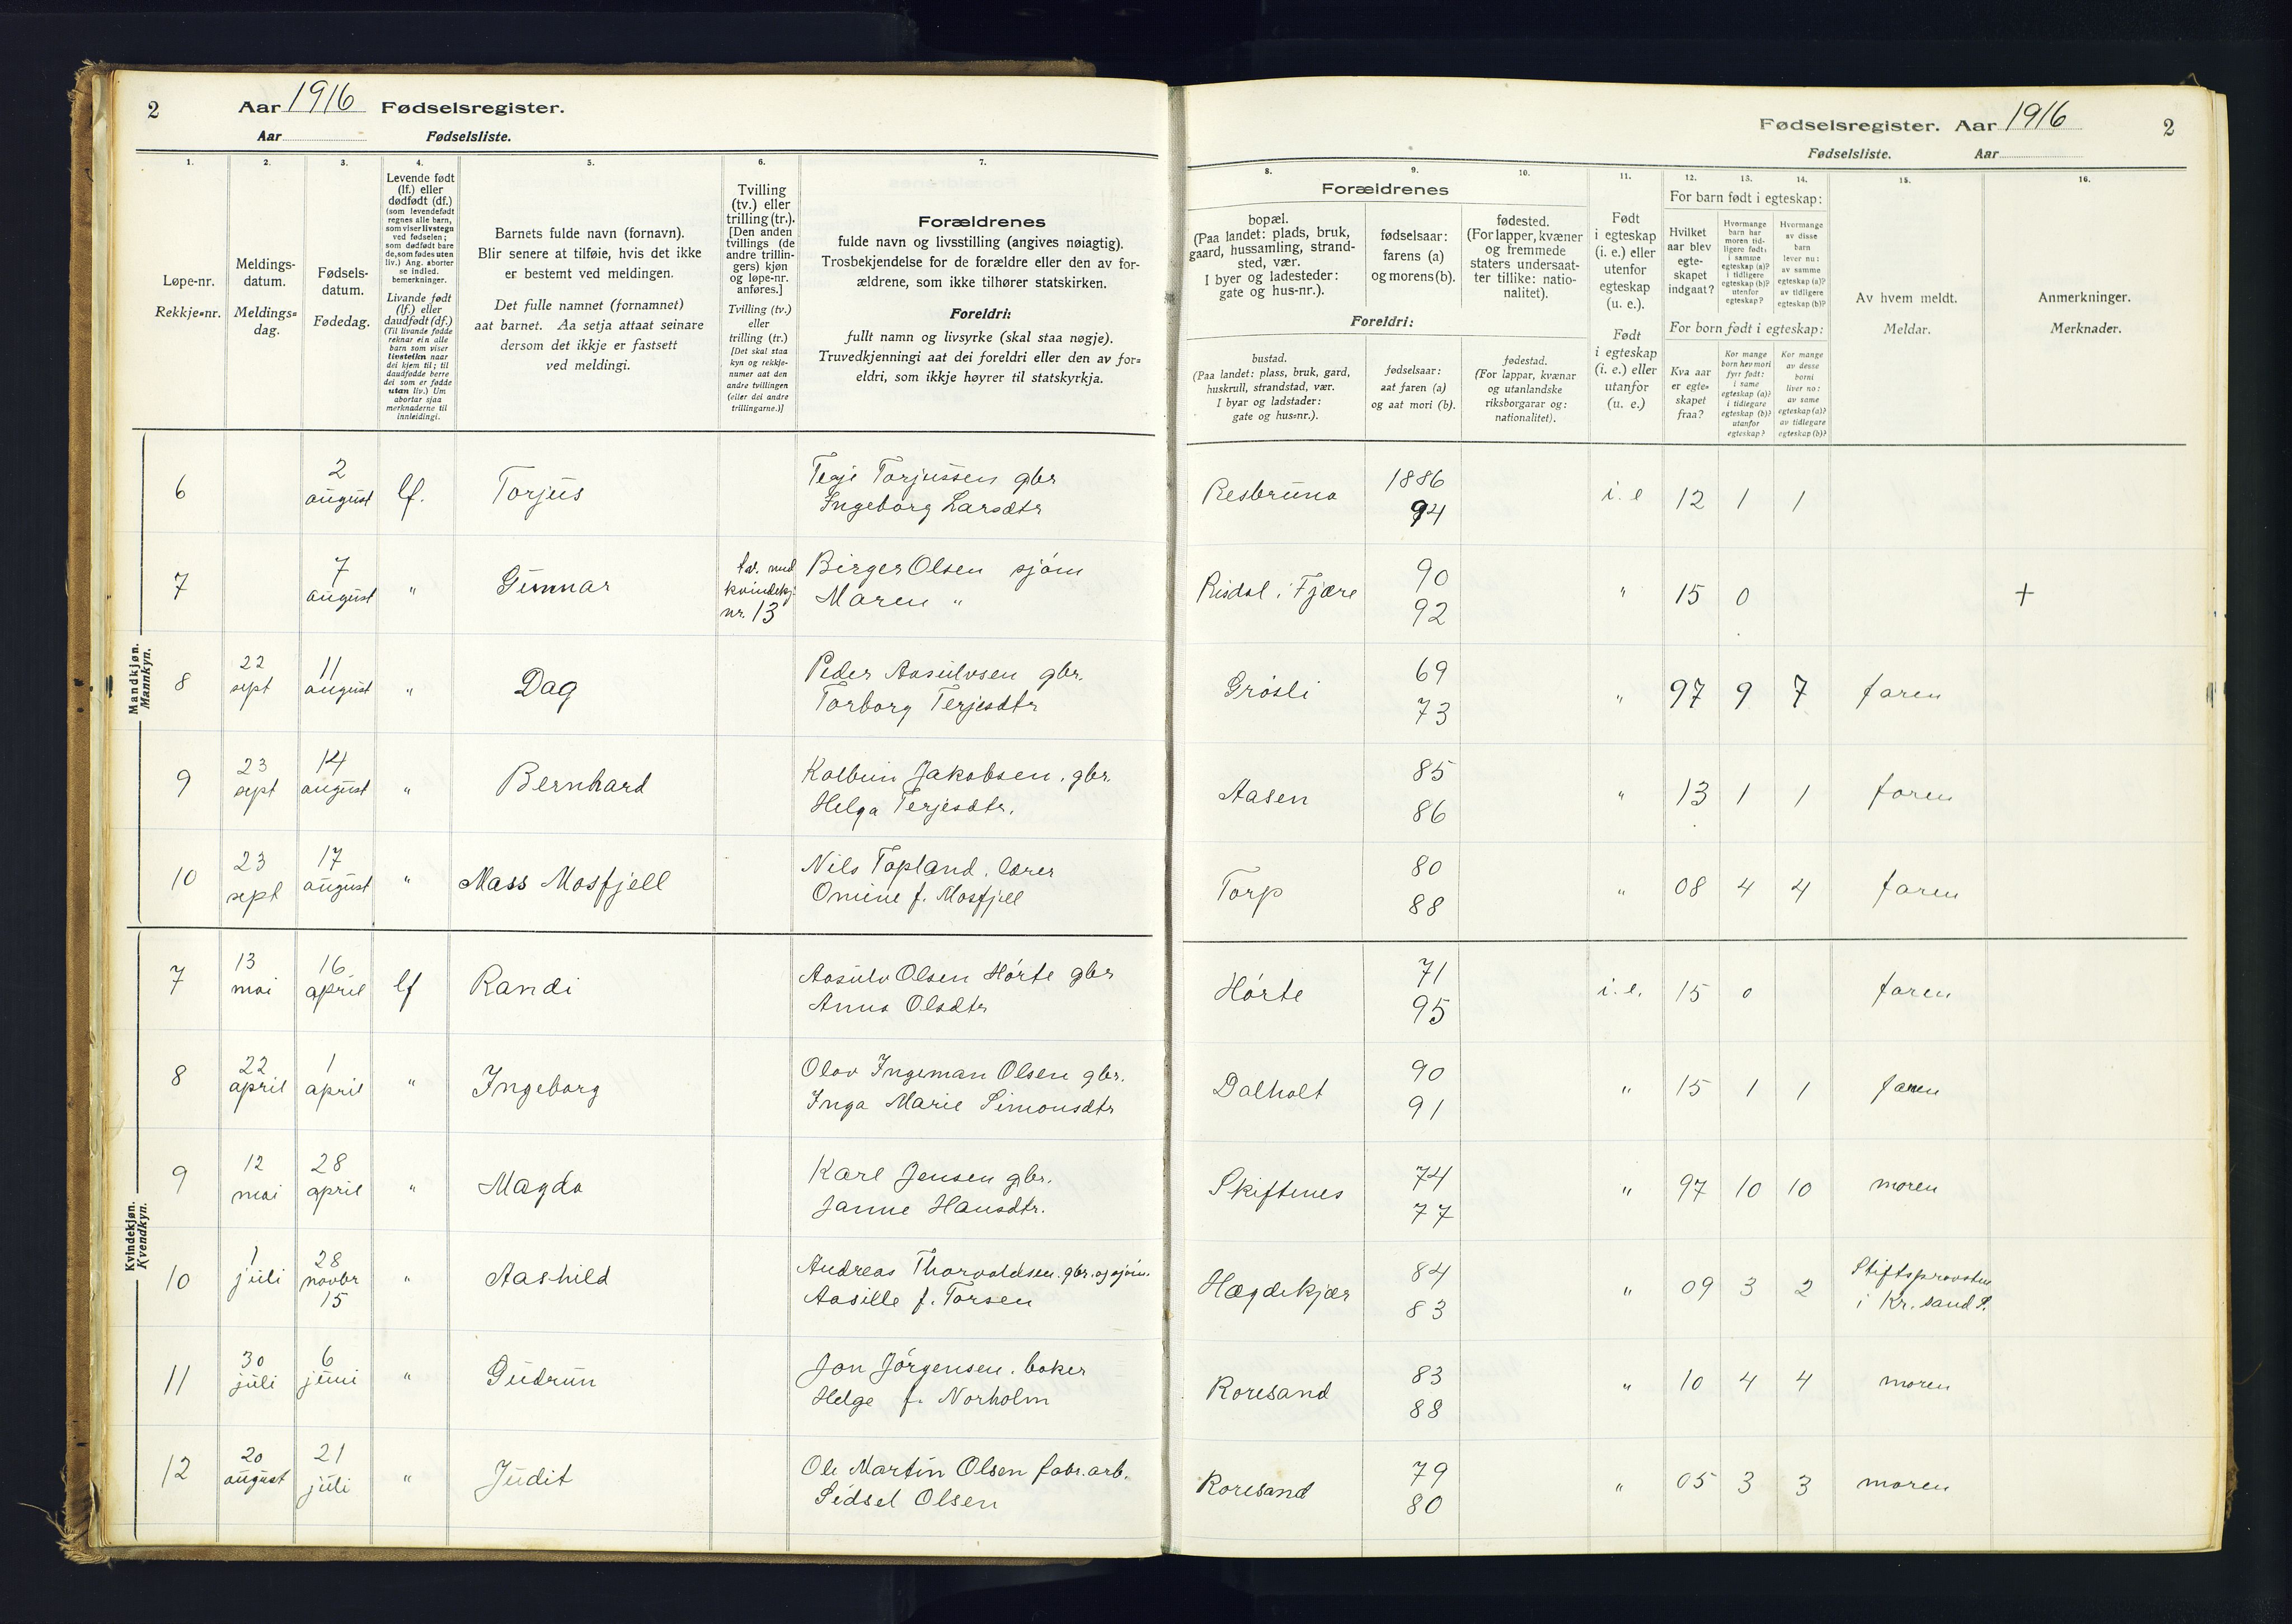 2 Aar 1916 Fødselsregister.
Aar Fødselsliste.
Fødselsregister. Aar 1916 2
Fødselsliste. Aar
1. 2. 3. 4. 5. 6. 7.
Løpe-nr.
Rekkje=nr.
Meldings-
datum.
Meldings=
dag.
Fødsels-
datum.
Fødedag.
Levende født
(lf.) eller
dødfødt (df.)
(som levendefødt
regnes alle barn,
som viser livstegn
ved fødselen;
som dødfødt bare
de, som fødes uten
liv.) Ang. aborter
se indled.
bemerkninger.
Livande født
(lf.) eller
daudfødt (df.)
(Til livande fødde
reknar ein alle
barn som viser
livsteikn naar
dei kjem til; til
daudfødde berre
dei som er fødde
utan liv.) Um
abortar sjaa
merknaderne til
innleidingi.
Barnets fulde navn (fornavn).
Blir senere at tilføie, hvis det ikke
er bestemt ved meldingen.
Det fulle namnet (fornamnet)
aat barnet. Aa setja attaat seinare
dersom det ikkje er fastsett
ved meldingi.
Tvilling
(tv.) eller
trilling (tr.).
[Den anden
tvillings (de
andre trillin-
gers) kjøn
og løpe-nr.
anføres.]
Tvilling (tv.)
eller
trilling (tr.)
[Det skal staa
kyn og rekkje-
numer aat den
andre tvillingen
(eller dei andre
trillingarne.)]
Forældrenes
fulde navn og livsstilling (angives nøiagtig).
Trosbekjendelse for de forældre eller den av for-
ældrene, som ikke tilhører statskirken.
Foreldri:
fullt namn og livsyrke (skal staa nøgje).
Truvedkjenningi aat dei foreldri eller den av for=
eldri, som ikkje høyrer til statskyrkja.
8. 9. 10. 11. 12. 13. 14. 15. 16.
Forældrenes
bopæl.
(Paa landet: plads, bruk,
gaard, hussamling, strand-
sted, vær.
I byer og ladesteder:
gate og hus-nr.).
fødselsaar:
farens (a)
og morens (b).
fødested.
(For lapper, kvæner
og fremmede
staters undersaat-
ter tillike: natio-
nalitet).
Foreldri:
bustad.
(Paa landet: plass, bruk, gard,
huskrull, strandstad, vær.
I byar og ladstader:
gate og hus=nr.).
fødselsaar:
aat faren (a)
og aat mori (b).
fødestad.
(For lappar, kvænar
og utanlandske
riksborgarar og:
nationalitet).
Født
i egteskap
(i. e.) eller
utenfor
egteskap
(u. e.).
Født
i egteskap
(i. e.) eller
utanfor
(u. e.)
For barn født i egteskap:
Hvilket
aar blev
egte-
skapet
indgaat?
Hvormange
barn har
moren tid-
ligere født:
i samme
egteskap (a)?
i tidligere
egteskap (b)?
utenfor
egteskap?
Hvormange
av disse
barn
lever nu:
av samme
egteskap (a)?
av tidligere
egteskap (b)?
For born født i egteskap:
Kva aar
er egte=
skapet
fraa?
Kor mange
born hev mori
fyrr født:
i same
egteskap (a)?
i tidlegare
egteskap (b)?
utanfor
egteskap?
Kor mange
av desse
borni
liver no:
av same
egteskap (a)?
av tidlegare
egteskap (b)?
Av hvem meldt.
Meldar.
Anmerkninger.
Merknader.
Mandkjøn.
Mannkyn.
6 2 august lf. Torjus
Terje Torjussen gbr
Ingeborg Larsdtr
Resbruna 1886 94 i. e 12 1 1
7 7 august " Gunnar tv. med kvindekj. nr. 13
Birger Olsen sjøm
Maren "
Risdal i Fjære 90 92 " 15 0 +
8 22 sept 11 august " Dag
Peder Aasulvsen gbr.
Torborg Terjesdtr
Grøsli 69 73 " 97 9 7 faren
9 23 sept 14 august " Bernhard
Kolbein Jakobsen. gbr.
Helga Terjesdtr.
Aasen 85 86 " 13 1 1 faren
10 23 sept 17 august " Mass Mosfjell
Nils Topland. lærer
Omine f. Mosfjell
Torp 80 88 " 08 4 4 faren
Kvindekjøn.
Kvendkyn.
7 13 mai 16 april lf Randi
Aasulv Olsen Hørte gbr
Anna Olsdtr
Hørte 71 95 i. e. 15 0 faren
8 22 april 1 april " Ingeborg
Olav Ingeman Olsen gbr.
Inga Marie Simonsdtr
Dalholt 90 91 " 15 1 1 faren
9 12 mai 28 april " Magda
Karl Jensen gbr.
Janne Hansdtr.
Skiftenes 74 77 " 97 10 10 moren
10 1 juli 28 novbr 15 " Aashild
Andreas Thorvaldsen. gbr. og sjøm.
Aasille f. Torsen
Hægdekjær 84 83 " 09 3 2 Stiftsprovsten
i Kr. sand S.
11 30 juli 6 juni " Gudrun
Jon Jørgensen. baker
Helge f. Norholm
Roresand 83 88 " 10 4 4 moren
12 20 august 21 juli " Judit
Ole Martin Olsen fabr. arb.
Sidsel Olsen
Roresand 79 80 " 05 3 3 moren